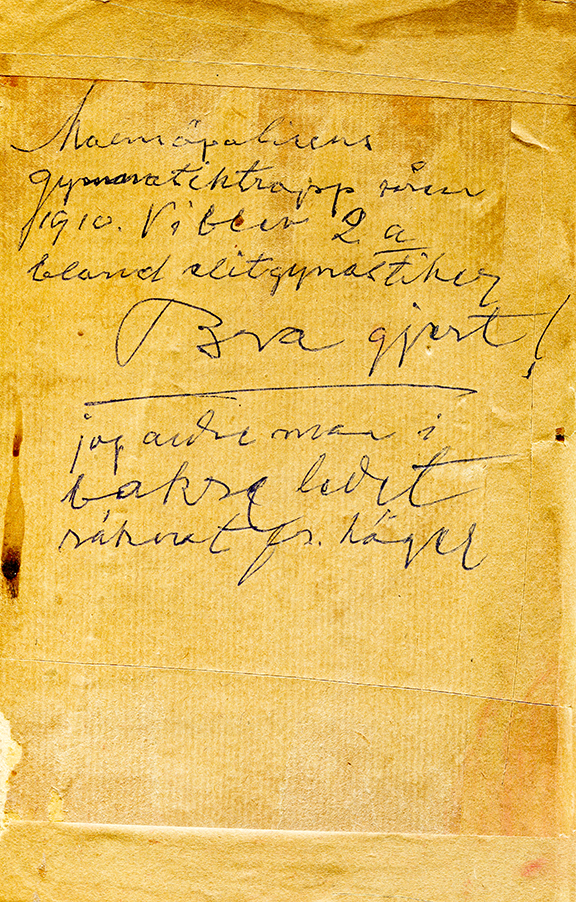 Malmöpolisens
gymnastiktropp våren
1910. Vi blev 2 a
bland elitgymnastiker
Bra gjort!
jag andre man i
bakre ledet
räknat fr. höger